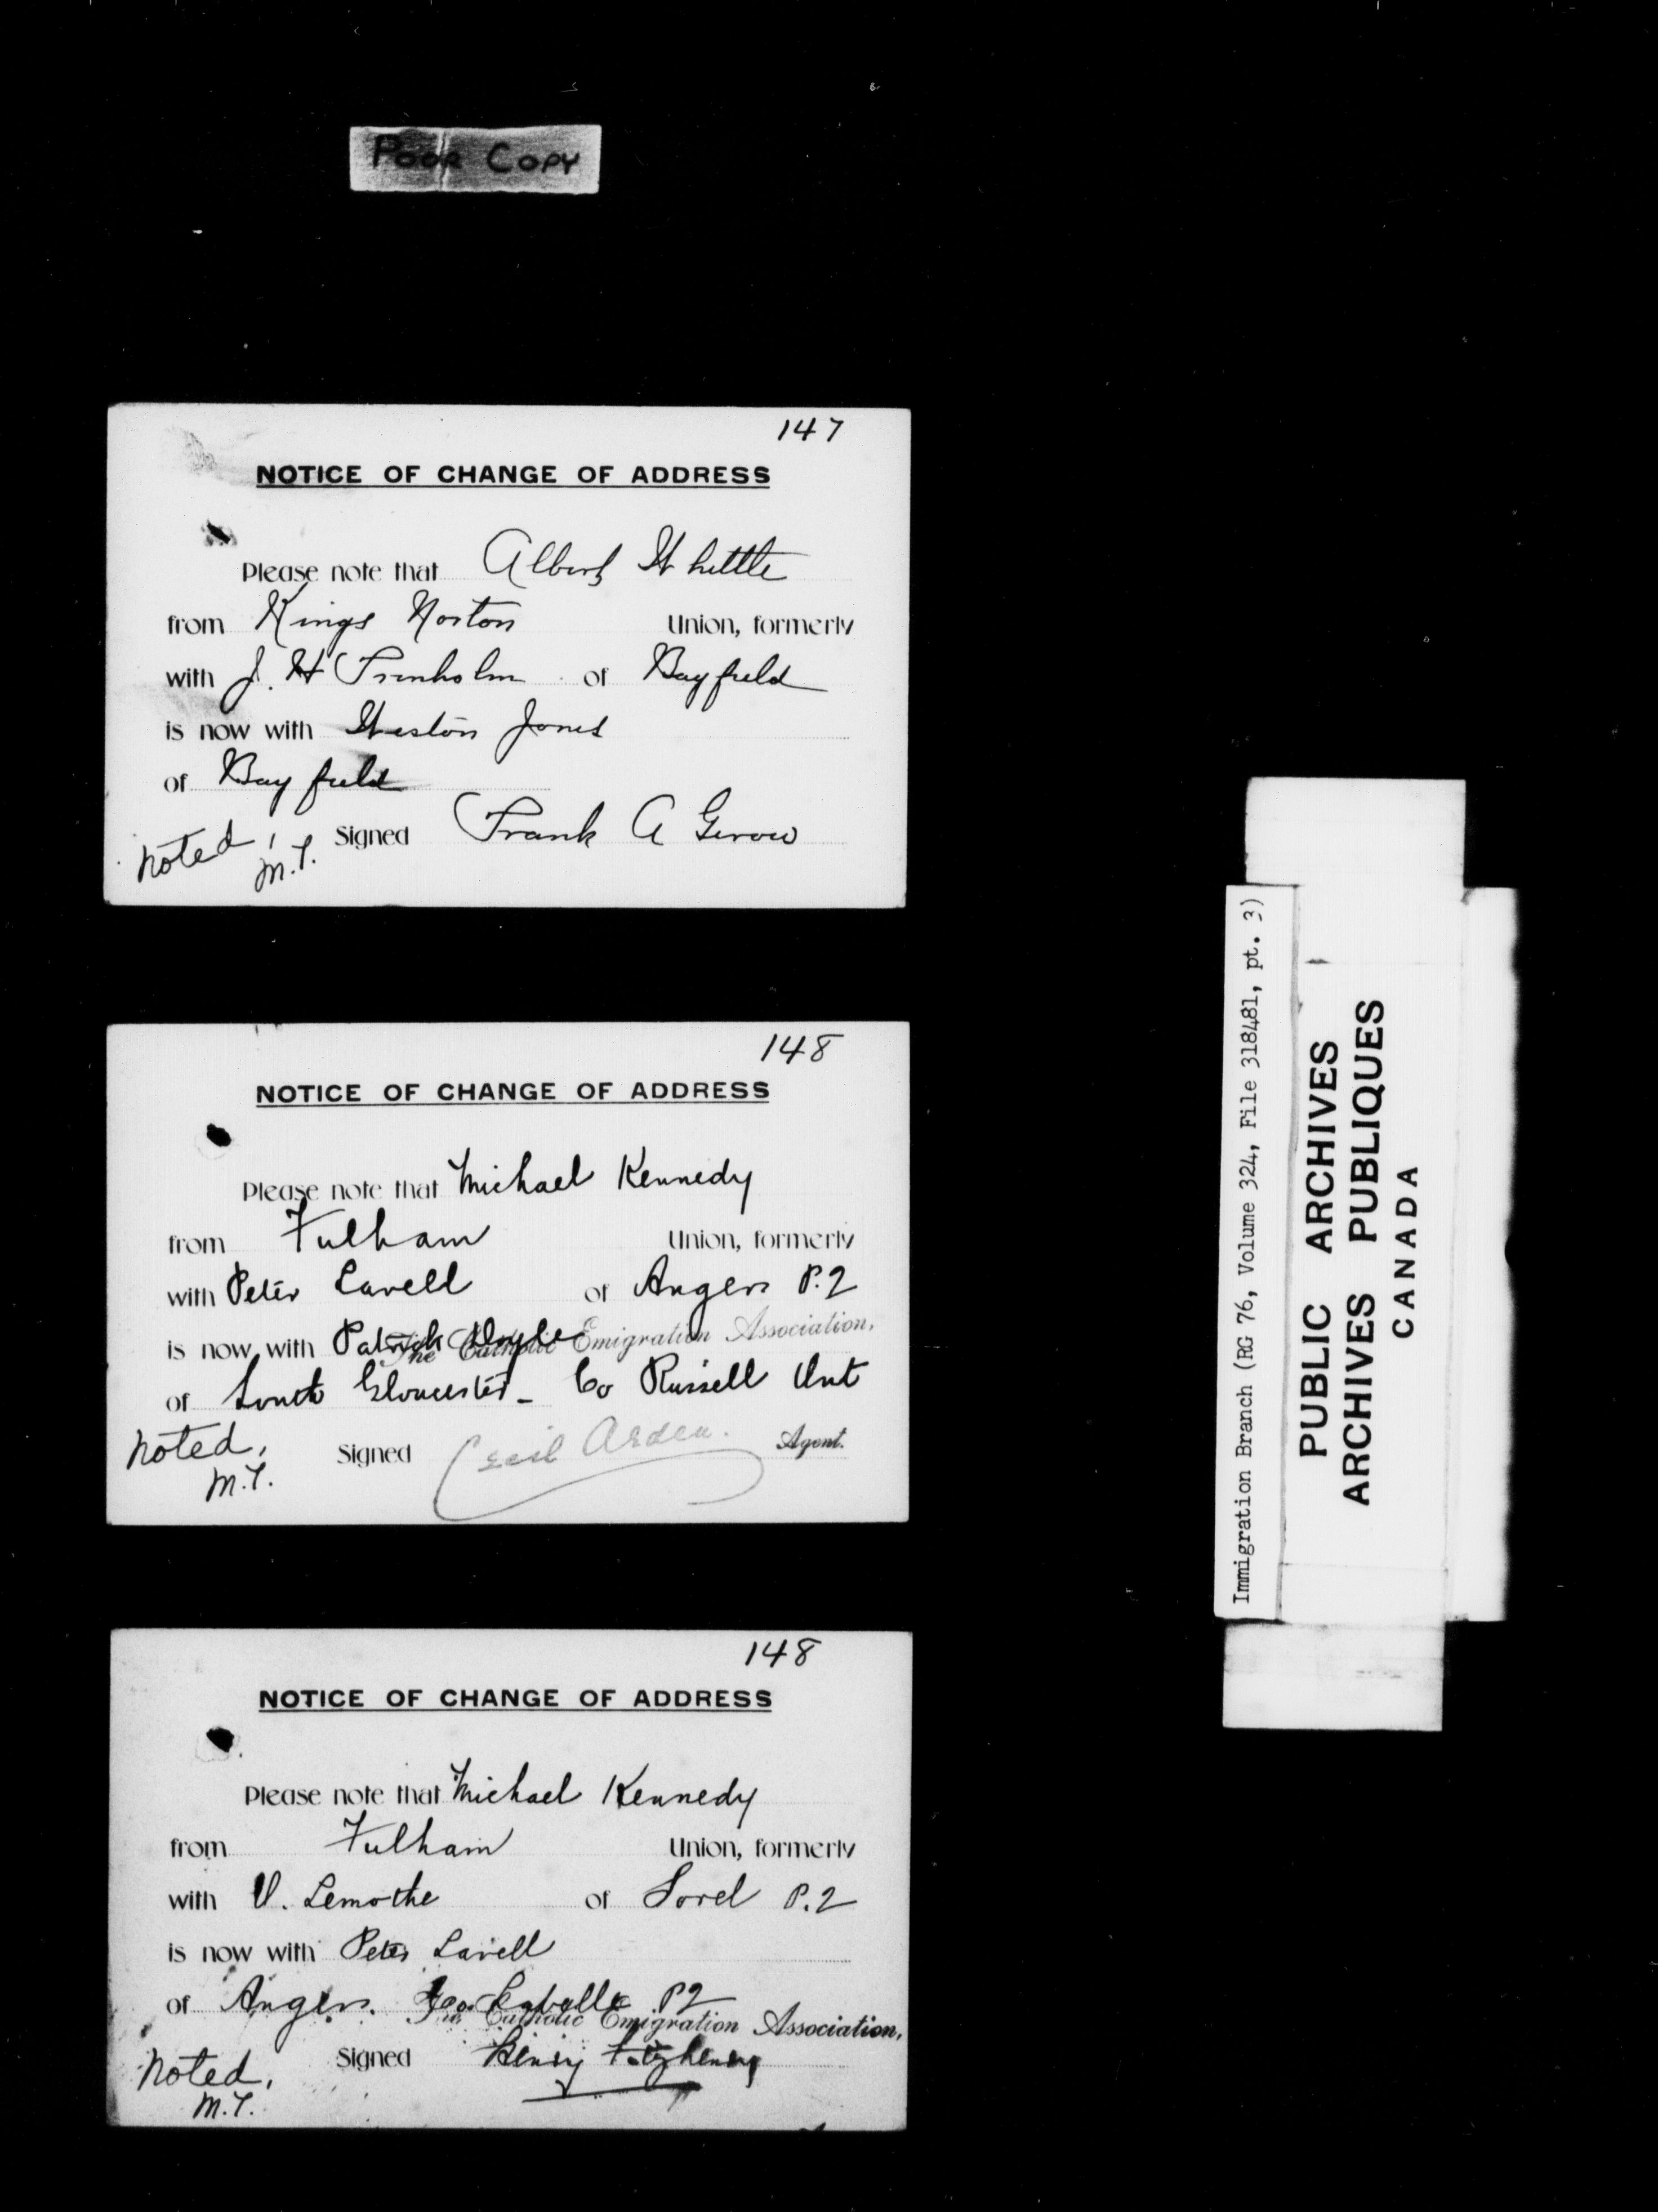 POOR COPY
147
NOTICE OF CHANGE OF ADDRESS
Please note that Albert Whittle
from Kings Norton Union, formerly
with J. H Trenholm of Bayfield
is now with Weston Jones
of Bayfield
Noted, Signed Frank A Gerow
M.T.
148
NOTICE OF CHANGE OF ADDRESS
Please note that Michael Kennedy
from Fulham Union, formerly
with Peter Lavell of Angers P.2
is now with Patrick Doyle
The Catholic Emigration Association,
of South Gloucester - Co Russell Ont
Noted, Signed Cecil Arden. Agent.
M.T.
148
NOTICE OF CHANGE OF ADDRESS
Please note that Michael Kennedy
from Fulham Union, formerly
with V. Lemothe of Sorel P.2
is now with Peter Lavell
of Angers. Co. Labelle P2
The Catholic Emigration Association,
Noted, Signed Henry Fitzhenry
M.T.
Immigration Branch (RG 76, Volume 324, File 318481, pt. 3)
PUBLIC ARCHIVES
ARCHIVES PUBLIQUES
CANADA